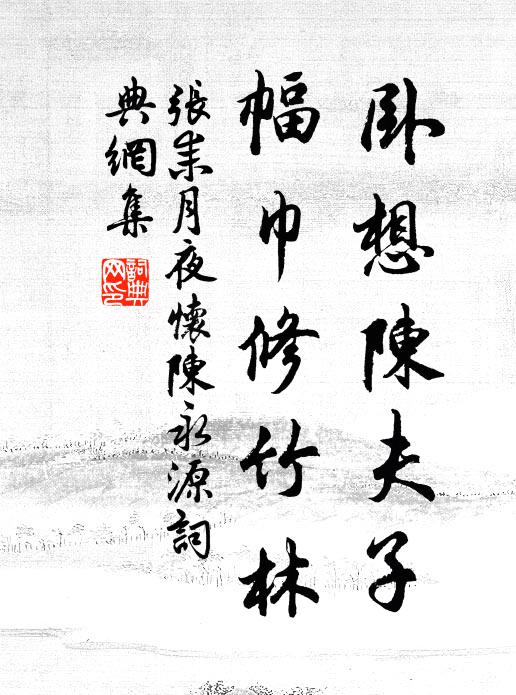 卧想陳夫子
幅巾修竹林
張耒月夜懷陳永源詞
典網集
詞典
网印